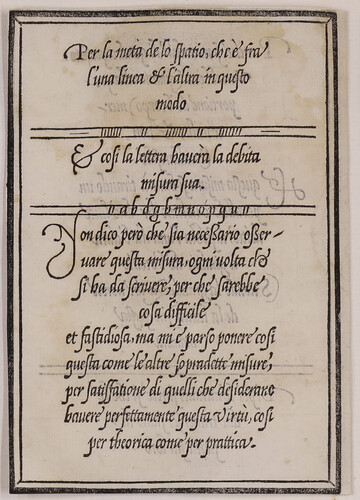 Per la metà de lo spatio, che è fra
l'una linea & l'altra in questo
modo.
& così la lettera haverà la debita
misura sua.
n a b d g h m n o p q u n
Non dico però che sia necessario osser-
vare questa misura, ogni volta che
si ha da scrivere, per che sarebbe
cosa difficile
et fastidiosa, ma mi è parso ponere così
questa come le altre sopradette misure,
per satisfatione di quelli che desiderano
havere perfettamente questa virtù, così
per theorica come per prattica.